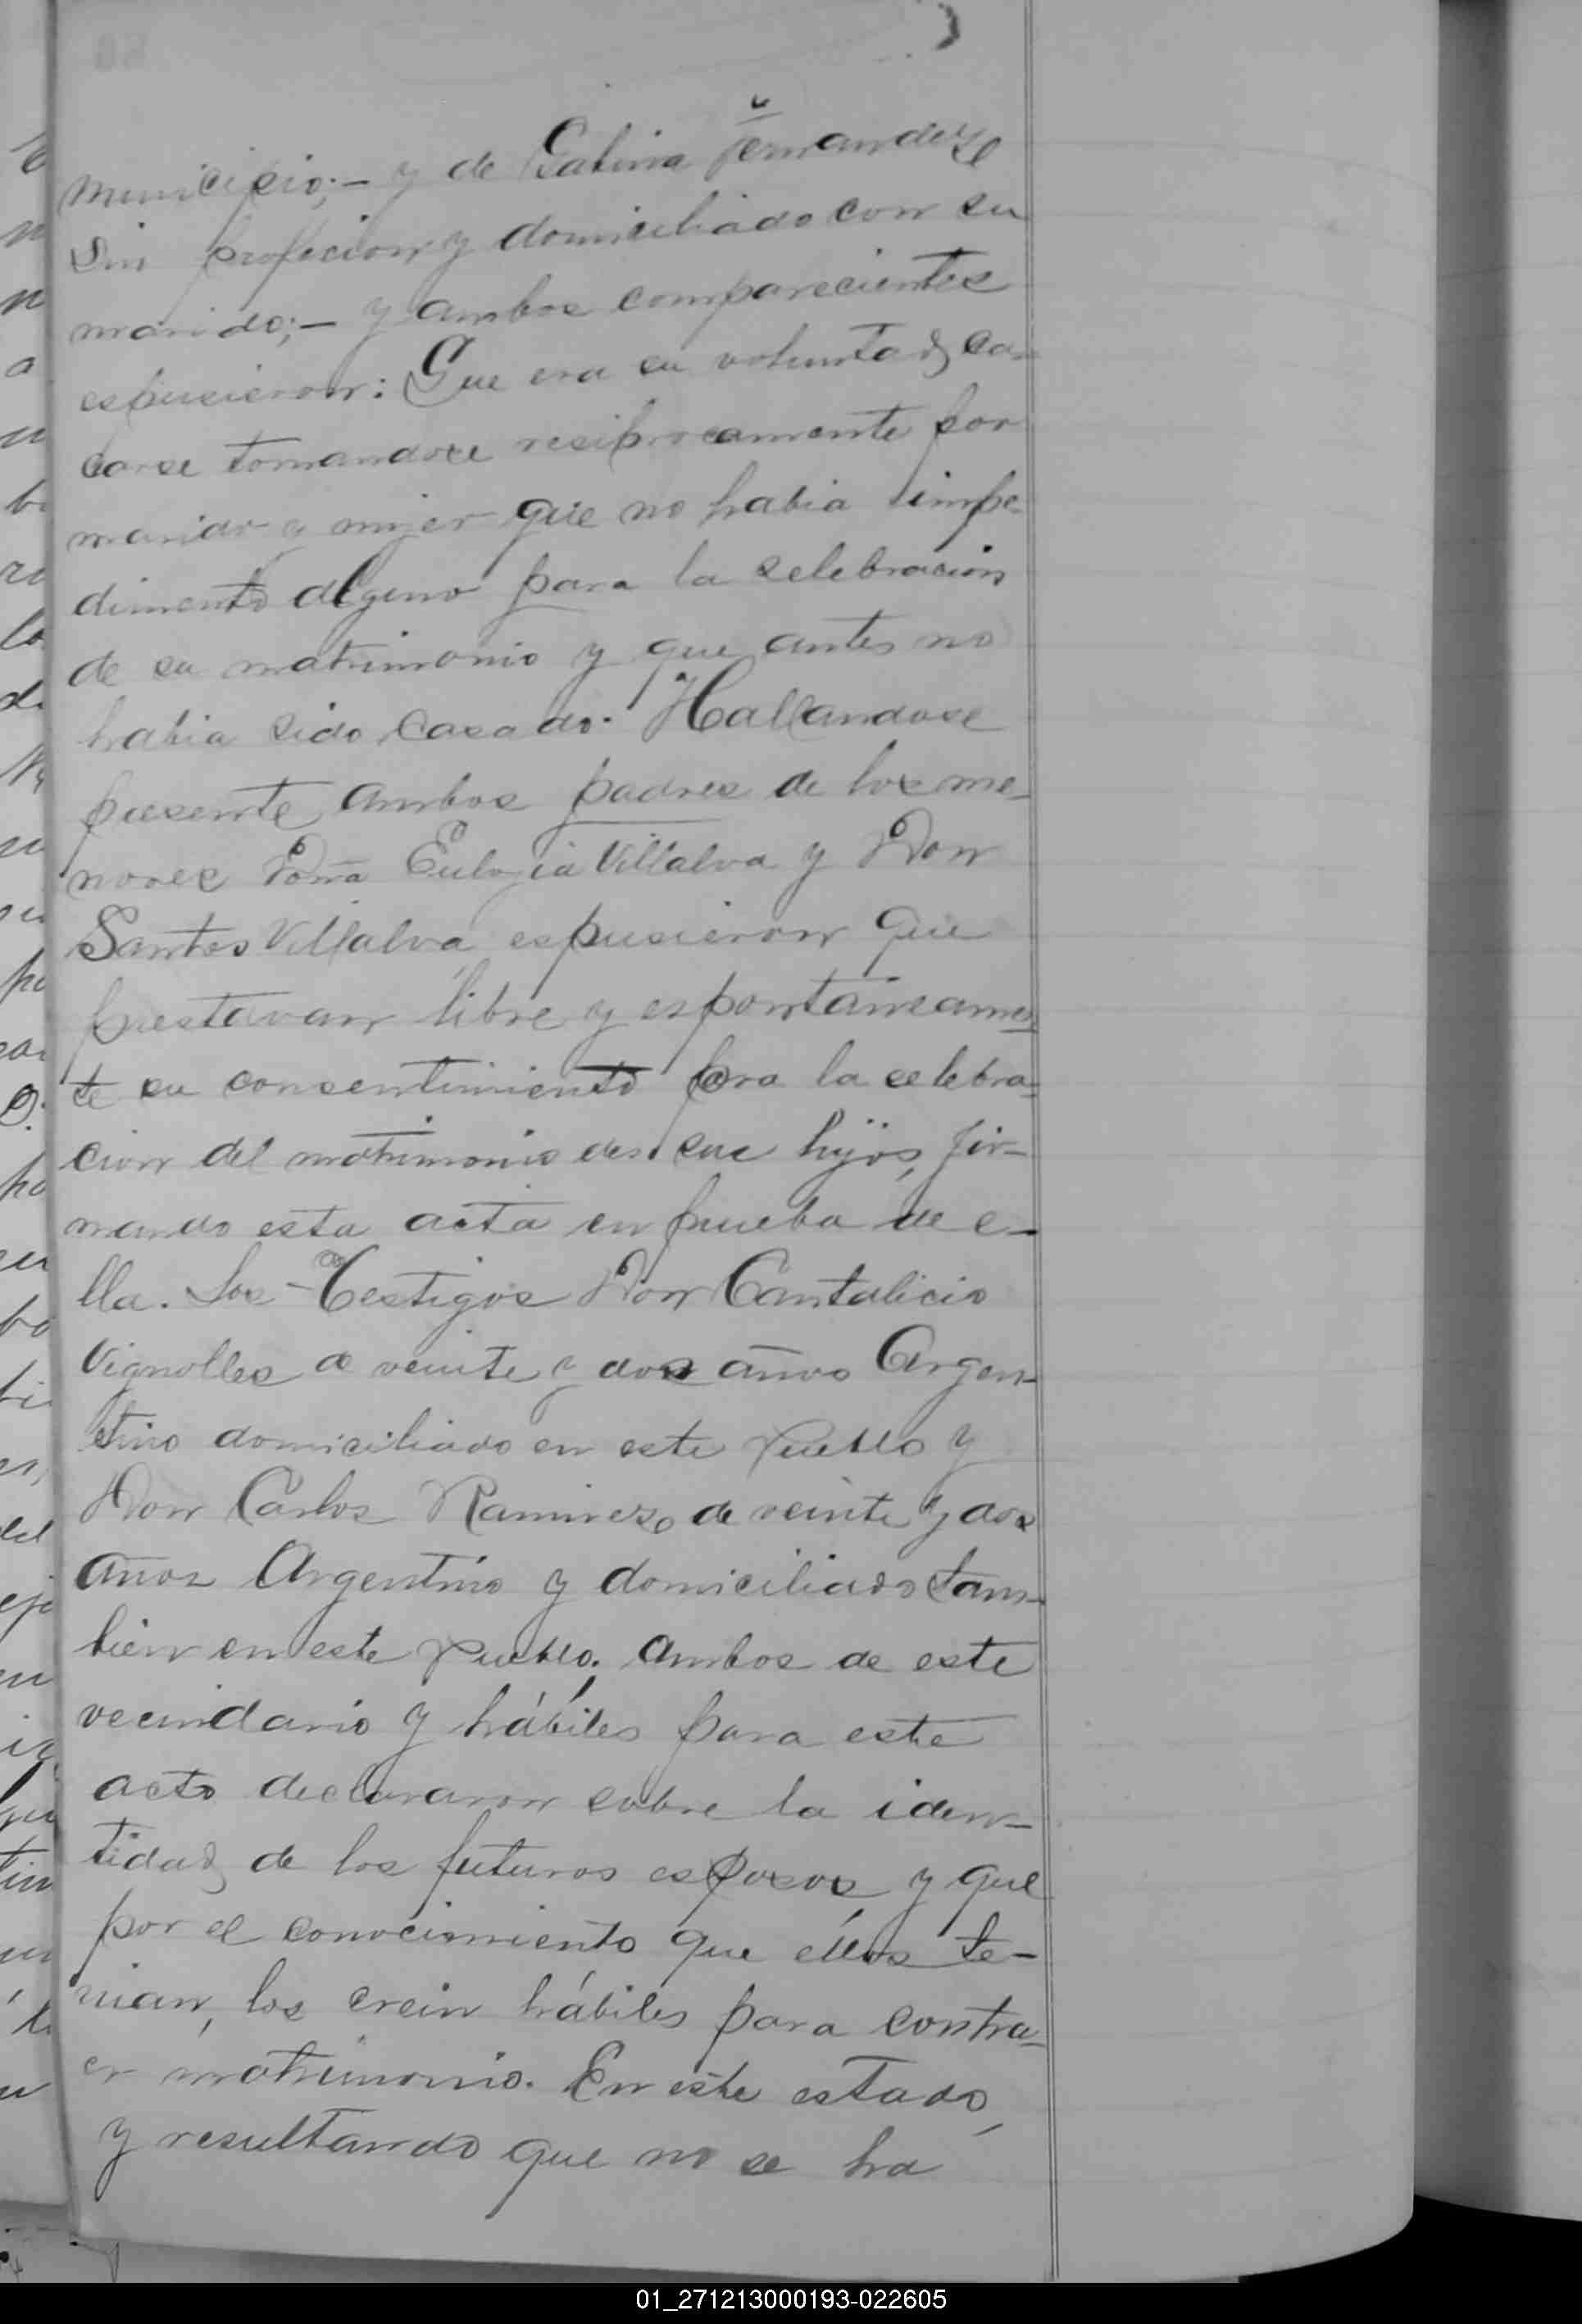 municipio;- y de Sabina Fernandez
Sin profecion y domiciliado con su
marido;- y ambos comparecientes
espusieron: Que era su voluntad ca-
sarse tomandose resiprocamente por
marido y mujer que no habia impe-
dimento alguno para la selebracion
de su matrimonio y que antes no
habia sido casado. Hallandose
presente ambos padres de los me-
nores Doña Eulogia Villalva y Don
Santos Villalva espusieron que
prestavan libre y espontaneamen-
te su consentimiento para la celebra-
cion del matrimonio de sus hijos, fir-
mando esta acta en prueba de e-
lla. Los Testigos Don Cantalicio
Vignolles de veinte y dos años Argen-
tino domiciliado en este Pueblo y
Don Carlos Ramirez de veinte y dos
años Argentino y domiciliado tam-
bien en este Pueblo. Ambos de este
vecindario y hábiles para este
acto declararon sobre la iden-
tidad de los futuros esposos y que
por el conocimiento que éllos te-
nian, los crein hábiles para contra-
er matrimonio. En este estado,
y resultando que no se ha
01_271213000193-022605